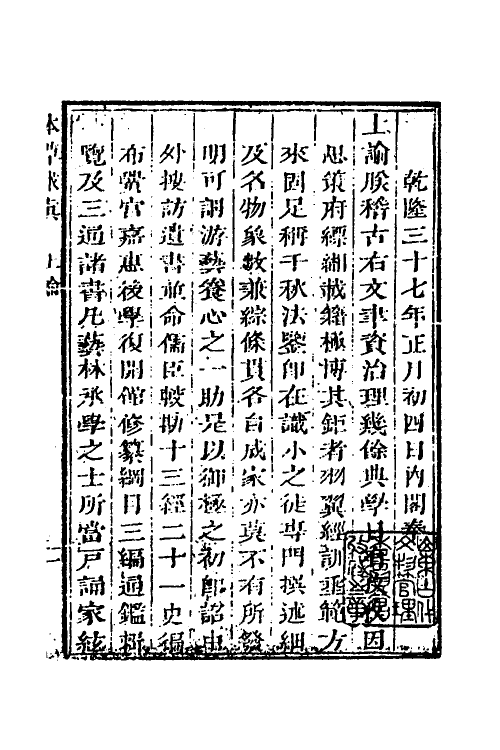 乾隆三十七年正月初四日內閣奉
上諭朕稽古右文聿資治理幾餘典學日有孜孜因
思策府縹緗載籍極博其鉅者羽翼經訓垂範方
來固足稱千秋法鑒即在識小之徒專門撰述細
及名物象數兼綜條貫各自成家亦莫不有所發
明可謂游藝養心之一助是以御極之初即詔中
外搜訪遺書並命儒臣校勘十三經二十一史徧
布黌宮嘉惠後學復開館修纂綱目三編通鑑輯
覽及三通諸書凡藝林承學之士所當戶誦家絃
本草求真 上諭